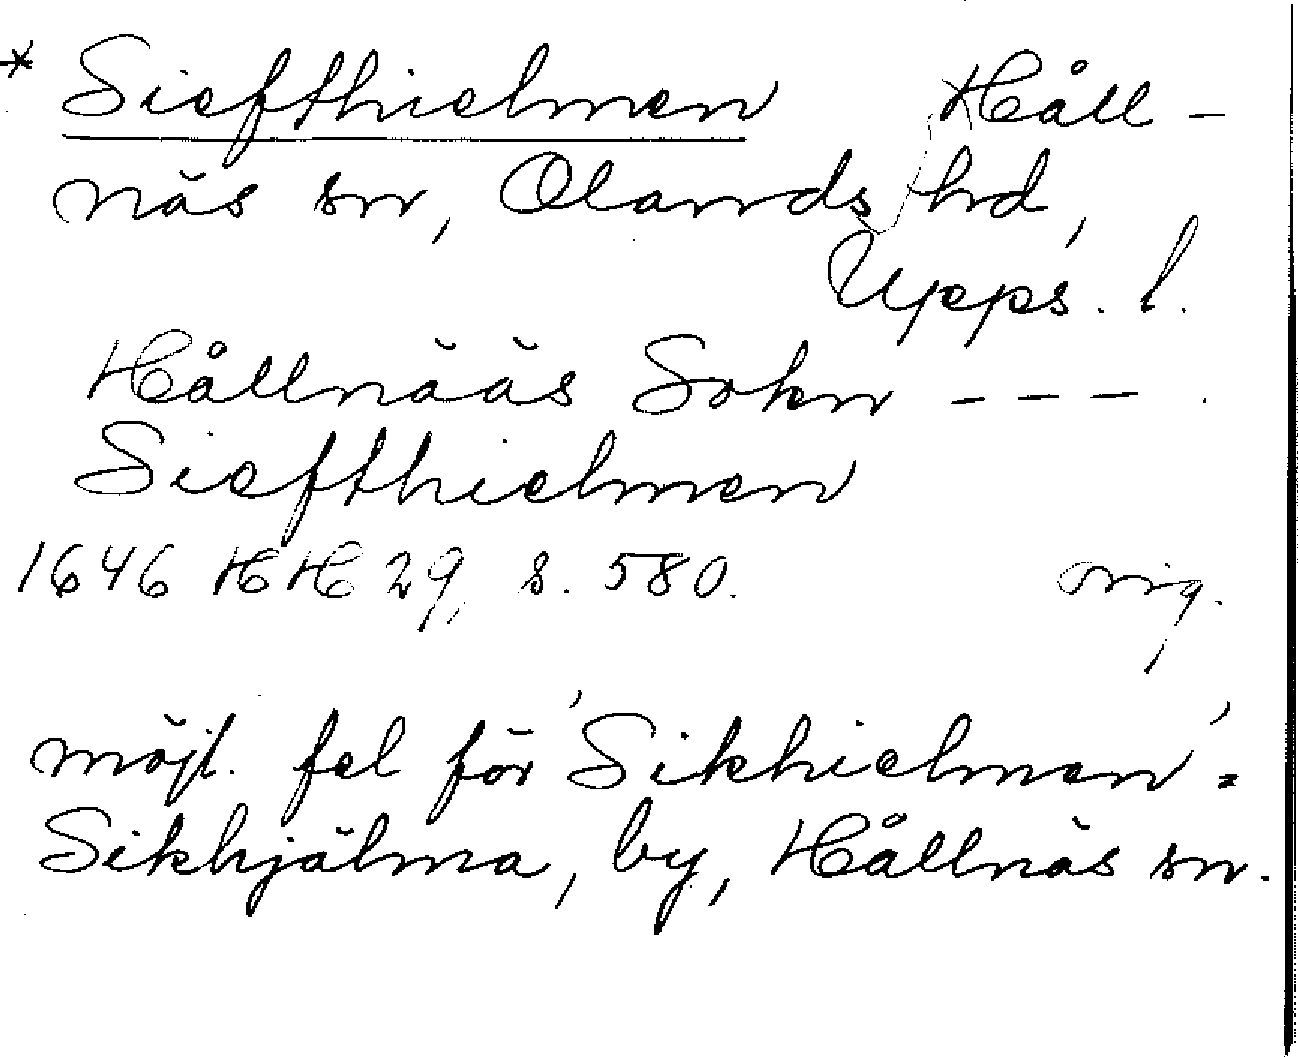 * Siefthielmen Håll-
näs sn, Olands hd,
Upps. l.
Hållnääs Sokn - - -
Siefthielmen
1646 HH 29, s. 580. orig.
möjl. fel för 'Sikhielmen' =
Sikhjälma, by, Hållnäs sn.